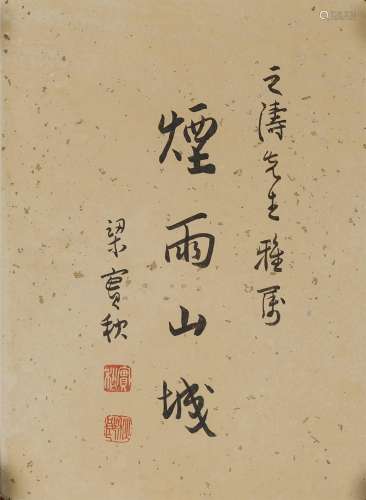 之濤先生雅属
煙雨山城
梁實秋